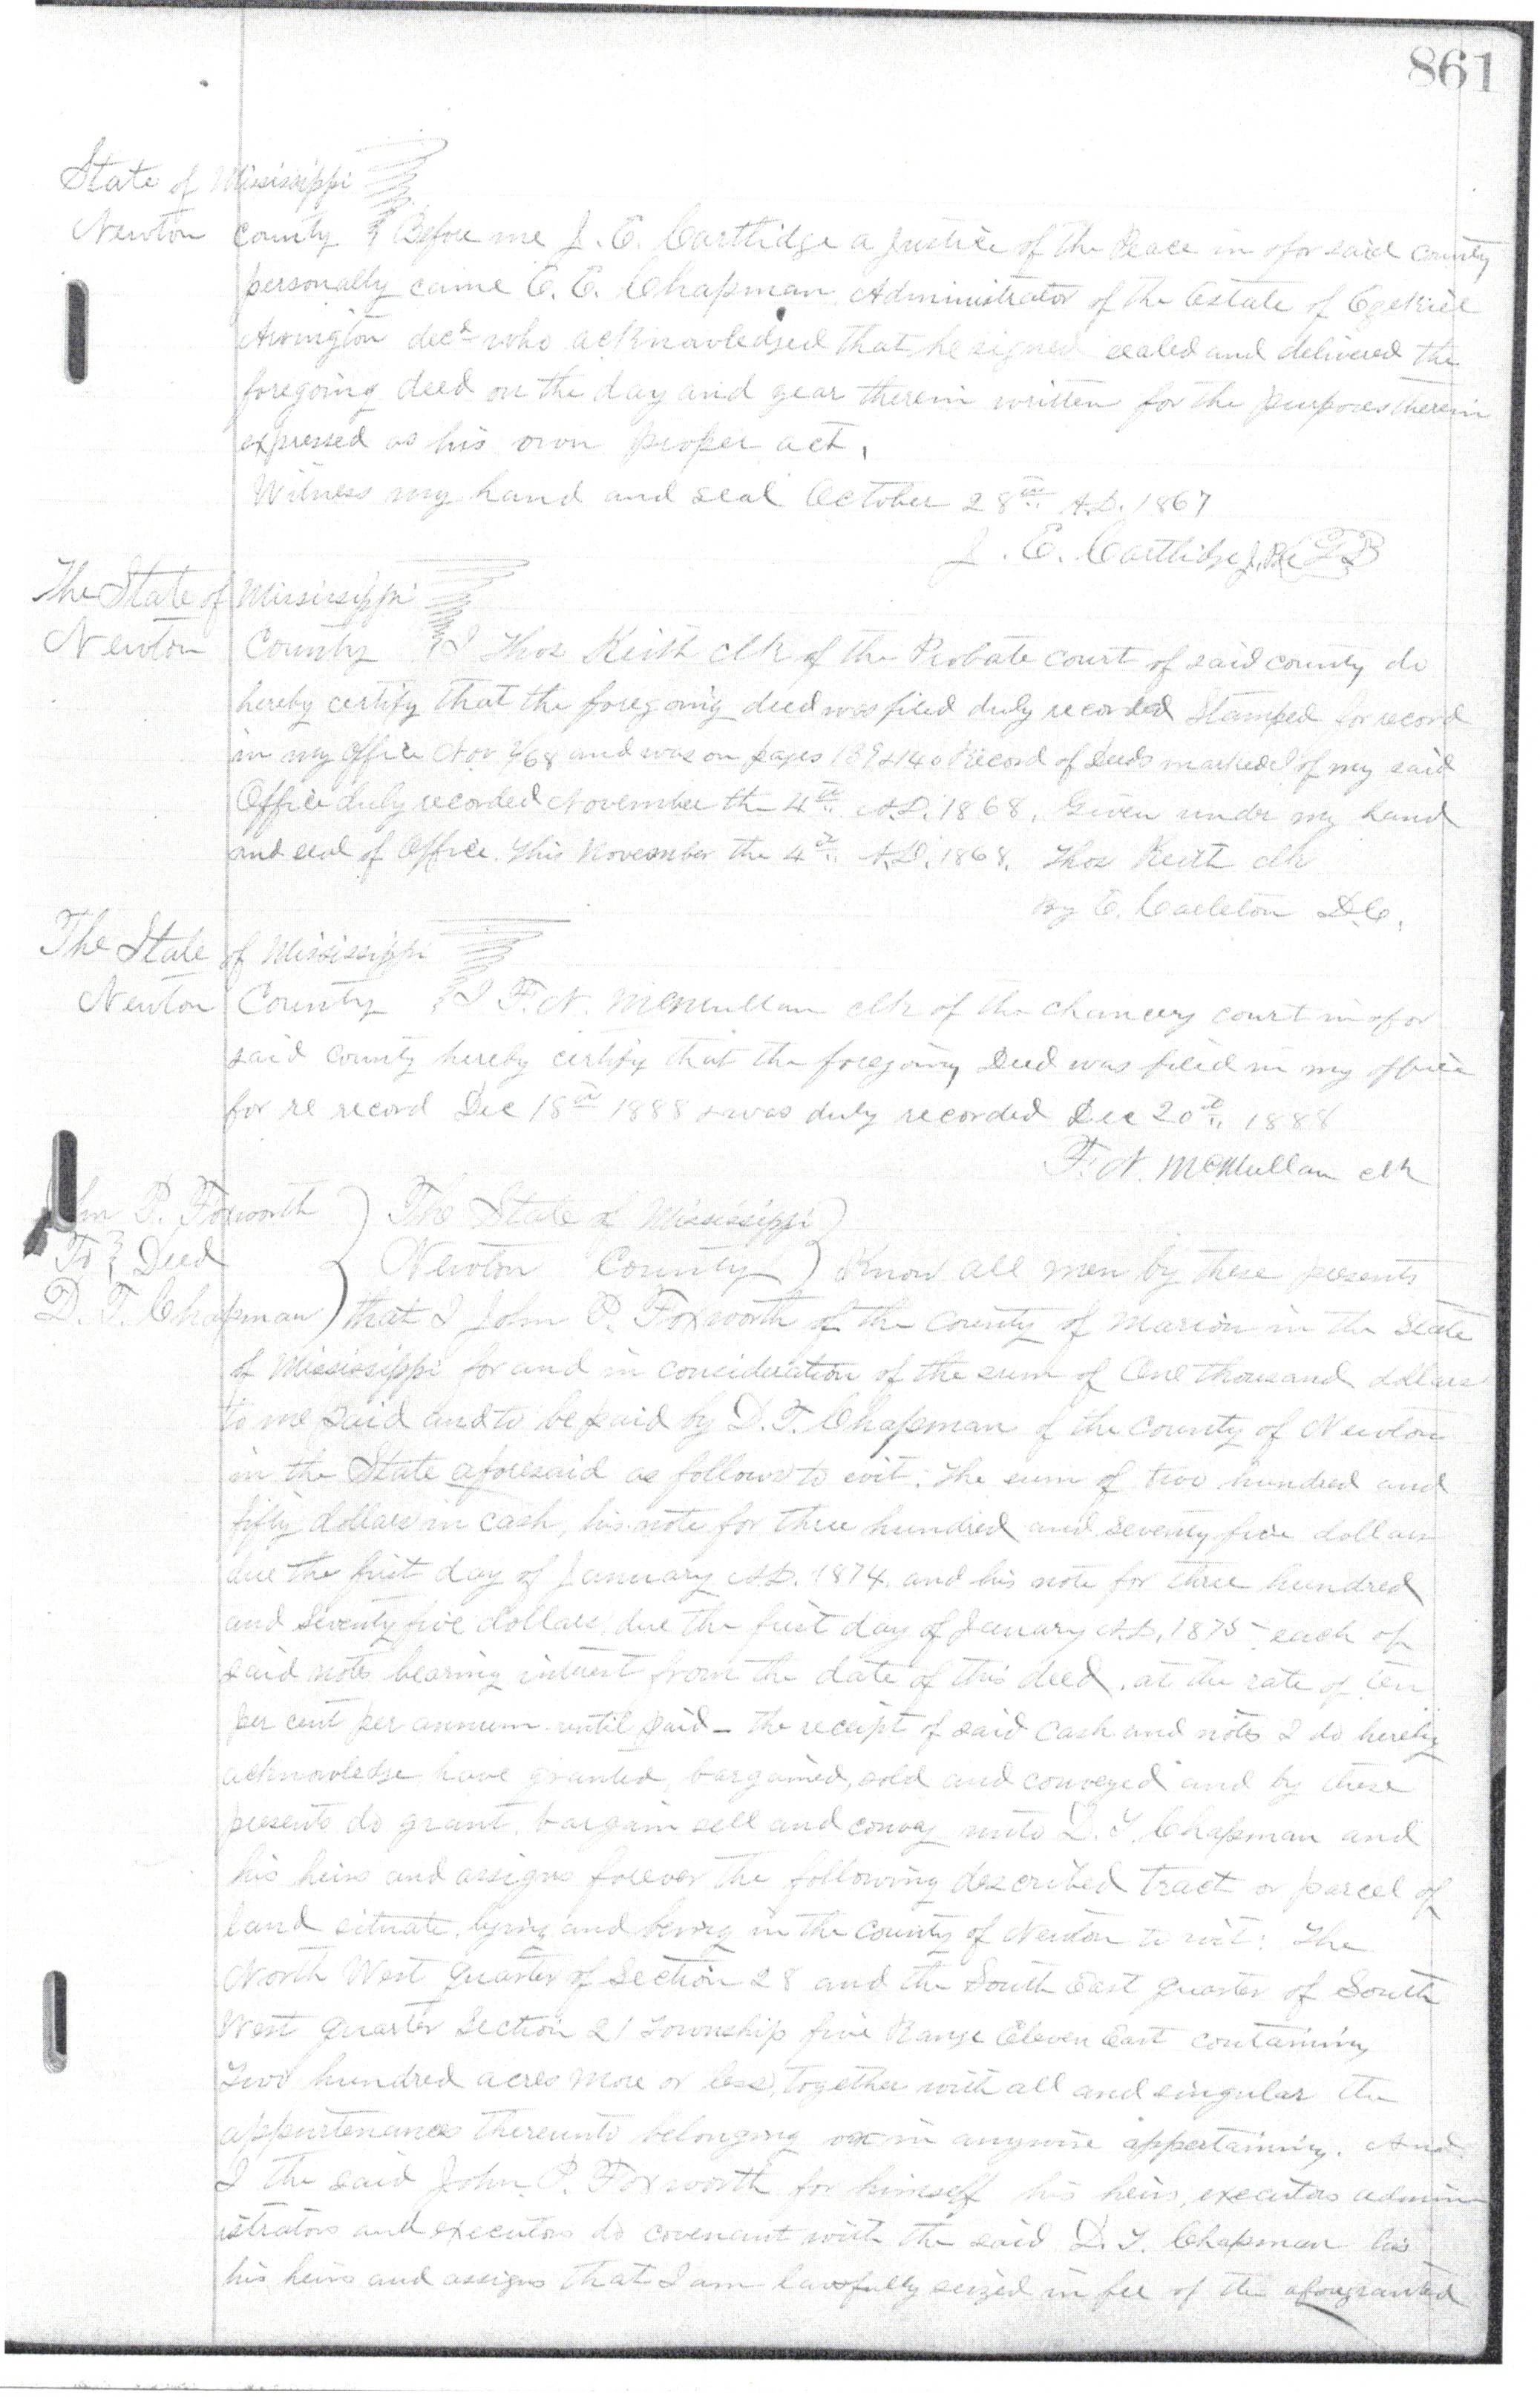 861
State of Mississippi
Newton County } Before me J. E. Cartlidge a Justice of the Peace in & for said County
personally came E. E. Chapman Administrator of the Estate of Ezekiel
Arrington decd who acknowledged that he signed sealed and delivered the
foregoing deed on the day and year therein written for the purposes therein
expressed as his own proper act.
Witness my hand and seal October 28th A.D. 1867
J. E. Cartlidge J.P.
The State of Mississippi
Newton County } I Thos Keith clk of the Probate court of said county do
hereby certify that the foregoing deed was filed duly recorded Stamped for record
in my Office Nov 2/68 and was on pages 139 & 140 Record of Deeds marked of my said
Office duly recorded November the 4th A.D. 1868. Given under my hand
and seal of Office. This November the 4th A.D. 1868. Thos Keith clk
by E. Carleton D.C.
The State of Mississippi
Newton County } I F. N. McMullan clk of the chancery court in & for
said county hereby certify that the foregoing Deed was filed in my office
for re record Dec 18th 1888 & was duly recorded Dec 20th 1888
F. N. McMullan clk
John P. Foxworth ) The State of Mississippi )
To } Deed } Newton County ) Know all men by these presents
D. T. Chapman ) that I John P. Foxworth of the County of Marion in the State
of Mississippi for and in consideration of the sum of One thousand dollars
to me paid and to be paid by D. T. Chapman of the County of Newton
in the State aforesaid as follows to wit: The sum of two hundred and
fifty dollars in cash, his note for three hundred and seventy five dollars
due the first day of January A.D. 1874. and his note for three hundred
and seventy five dollars due the first day of January A.D. 1875 - each of
said notes bearing interest from the date of this deed. at the rate of ten
per cent per annum until paid - the receipt of said cash and notes I do hereby
acknowledge have granted, bargained, sold and conveyed and by these
presents do grant, bargain sell and convey unto D. T. Chapman and
his heirs and assigns forever the following described tract or parcel of
land situate, lying and being in the county of Newton to wit: The
North West quarter of Section 28 and the South East quarter of South
West quarter Section 21 Township five Range Eleven East containing
Two hundred acres more or less, together with all and singular the
appurtenances thereunto belonging or in anywise appertaining. And
I the said John P. Foxworth for himself his heirs, executors admin
istrators and executors do covenant with the said D. T. Chapman his
his heirs and assigns that I am lawfully seized in fee of the aforegranted